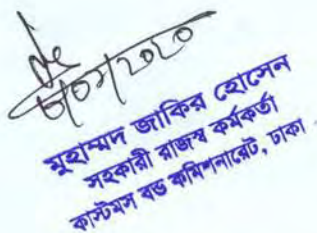 মুহাম্মদ জাকির হোসেন
সহকারী রাজস্ব কর্মকর্তা
কাস্টমস বন্ড কমিশনারেট, ঢাকা